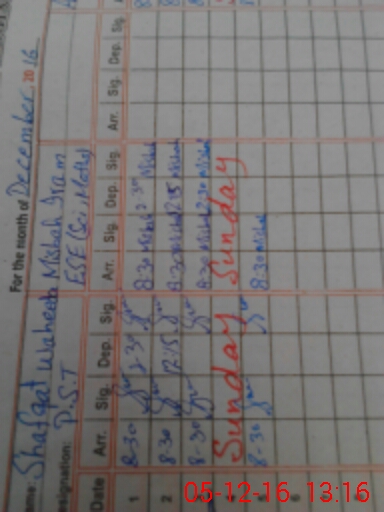 For the month of December 2016
Name: Shafqat Waheed Misbah Iram
Designation: P.S.T ESE (Sci Math)
Date Arr. Sig. Dep. Sig. Arr. Sig. Dep. Sig. Arr. Sig. Dep. Sig.
1 8-30 2-30 8.30 Misbah 2.30 Misbah
2 8-30 12:15 8.30 Misbah 12.15 Misbah
3 8-30 8.30 Misbah 2.30 Misbah
Sunday Sunday
5 8-30 8.30 Misbah
6
05-12-16 13:16